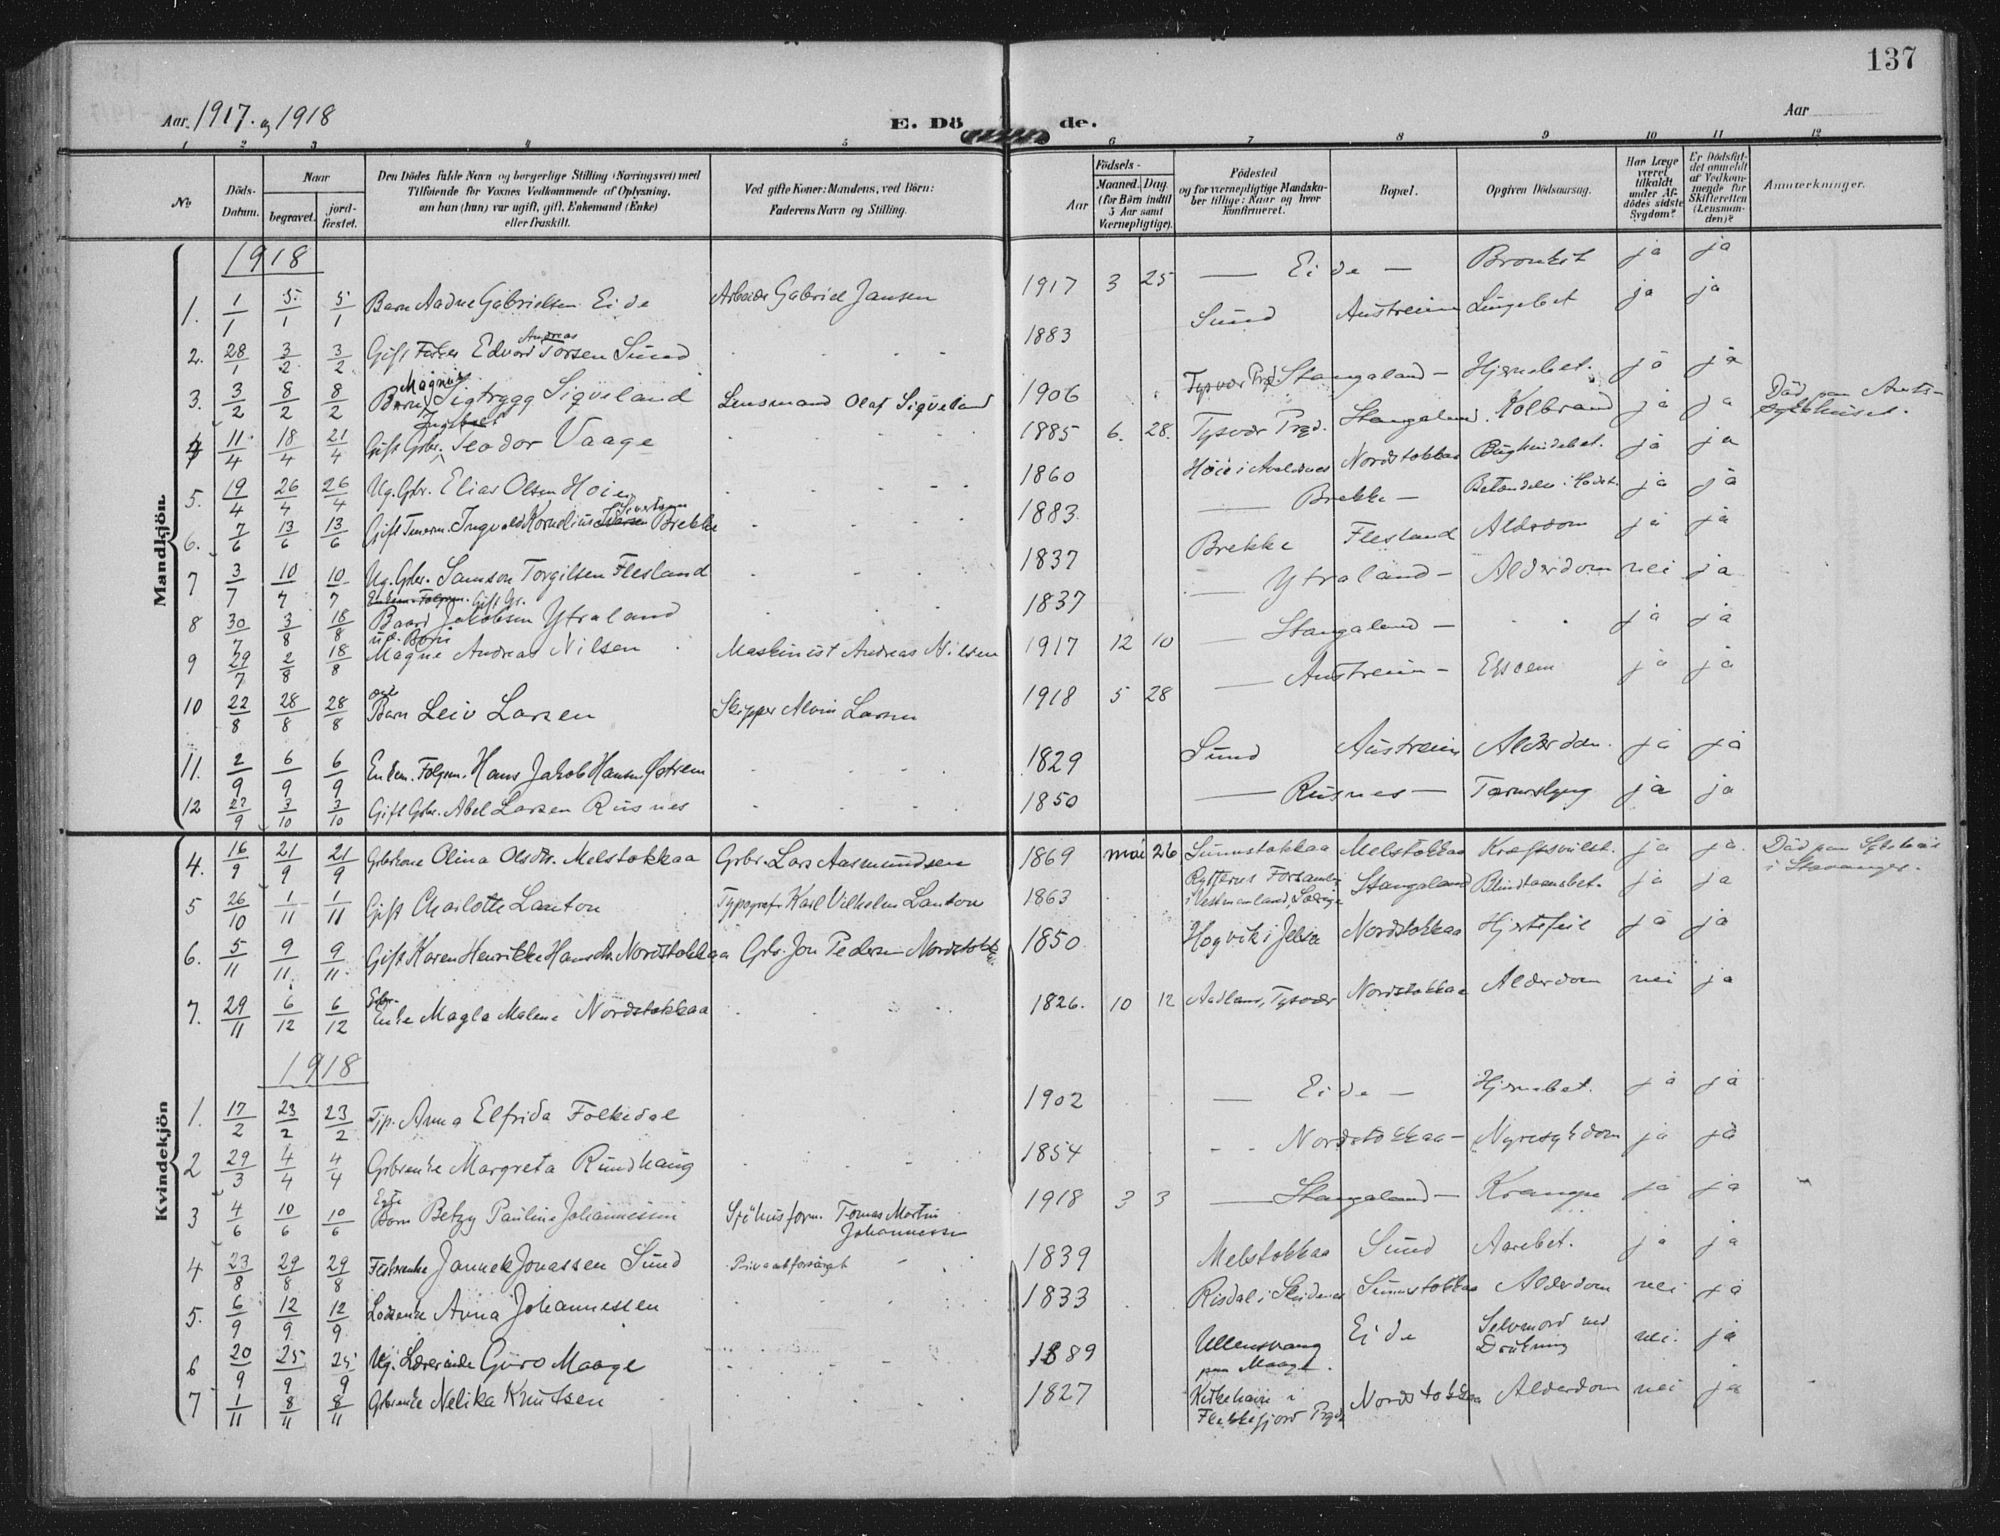 137
Aar. 1917. og 1918
E. Dö de.
Aar
1 2 3 4 5 6 7 8 9 10 11 12
No
Döds-Datum.
Naar
begravet.
jord-fæstet.
Den Dödes fulde Navn og borgerlige Stilling (Næringsvei) med
Tilföiende for Voxnes Vedkommende af Oplysning,
om han (hun) var ugift, gift, Enkemand (Enke)
eller fraskilt.
Ved gifte Koner: Mandens, ved Börn:
Faderens Navn og Stilling.
Födsels-
Aar
Maaned. Dag
(for Börn indtil
5 Aar samt
Værnepligtige).
Födested
og for værnepligtige Mandsko-
ber tillige: Naar og hvor
konfirmeret.
Bopæl.
Opgiven Dödsaarsag.
Har Læge
været
tilkaldt
under Af-
dödes sidste
Sygdom?
Er Dödsfal-
det anmeldt
af Vedkom-
mende for
Skifteretten
(Lensman-
den)?
Anmærkninger.
Mandkjön
1918
1. 1/1 5/1 5/1 Barn Aadne Gabrielsen Eide Arbeider Gabriel Jansen 1917 3 25 — Eide — Bronkit ja ja
2. 28/1 3/2 3/2 Gift Fisker Edvard Andreas Torsen Sund 1883 Sund Austreim Lungebet ja ja
3. 3/2 8/2 8/2 Barn Magnus Sigtrygg Sigveland Lensmand Olaf Sigveland 1906 Tysvær Prgd Stangaland — Hjernebet. ja ja
4 11/4 18/4 21/4 Gift Grbr. Ingebret Teodor Vaage 1885 6. 28. Tysvær Prgd. Stangaland. Kolbrand ja ja Död paa Amts-
sykehuset.
5. 19/4 26/4 26/4 Ug. Grbr. Elias Olsen Hoie 1860 Höie i Avaldsnes Nordstokkaa Bughindebet. ja ja
6. 7/6 13/6 13/6 Gift Tmerm. Ingvald Kornelius Sivertsen Brekke 1883. — Brekke — Betendelse i Hodet. ja ja
7 3/7 10/7 10/7 Ug. Grbr. Samson Torgilsen Flesland 1837 Brekke Flesland Alderdom ja ja
8 30/7 3/8 18/8 Enkem. Folgem. Gift Gr. Baard Jakobsen Ytraland 1837 — Ytraland — Alderdom nei ja
9 29/7 2/8 18/8 Magne Andreas Nilsen Maskinist Andreas Nilsen 1917 12 10 — Stangaland — ja ja
10 22/8 28/8 28/8 Barn Leiv Larsen Skipper Alvin Larsen 1918 5 28 — Austreim — Eksem ja ja
11. 2/9 6/9 6/9 Enkem. Folgem. Hans Jakob Hansen Østrem 1829 Sund Austreim Alderdom. ja ja
12 27/9 3/10 3/10 Gift Grbr. Abel Larsen Rusnes 1850 — Rusnes — Tarmslyng ja ja
Kvindekjön
4. 16/9 21/9 21/9 Grbrkone Olina Olsdtr. Melstokkaa Grbr. Lars Aasmundsen 1869 mai 26 Sunnstokkaa Melstokkaa Kræftsvulst. ja ja. Död paa Sykehus
i Stavanger.
5 26/10 1/11 1/11 Gift Charlotte Lanton Typograf Karl Vilhelm Lanton 1863 Rytternes Forsamling
i Vestmanland, Sverige Stangaland Blindtarmsbet. ja ja
6. 5/11 9/11. 9/11. Gift Karen Henrikke Hansdtr. Nordstokkaa Grbr. Jon Pedersen Nordstokk. 1850. Hogvik i Jelsa Nordstokkaa Hjertefeil ja ja
7. 29/11 6/12 6/12 Grbr. Enke Magla Malene Nordstokkaa 1826. 10 12 Aadland, Tysvær Nordstokkaa Alderdom nei ja
1918
1. 17/2 23/2 23/2 Tjp. Anna Elfrida Folkedal 1902 — Eide — Hjernebet. ja ja
2 29/3 4/4 4/4 Grbrenke Margreta Rundhaug 1854 Nordstokkaa — Nyresykdom ja ja
3 4/6 10/6 10/6 Egte Barn Betzy Pauline Johannessen Sjöhusform. Tomas Martin
Johannessen 1918 3 3 — Stangaland — Krampe ja ja
4 23/8 29/8 29/8 Fiskrenke Jannek Jonassen Sund Privat forsörget 1839 Melstokkaa Sund Aarebet. ja ja
5. 6/9 12/9. 12/9. Losenke Anna Johannessen 1833 Risdal i Skudenes Sunnstokkaa Alderdom nei ja
6 20/9 25/9 25/9 Ug. Lærerinde Guro Maage 1889 Ullensvang
paa Maage. Eide Selvmord ved
Drukning nei. ja
7 1/11 8/11 8/11 Grbrenke Nelika Knutsen 1827 Kirkehavn i
Flekkefjord Prgd. Nordstokkaa Alderdom nei ja